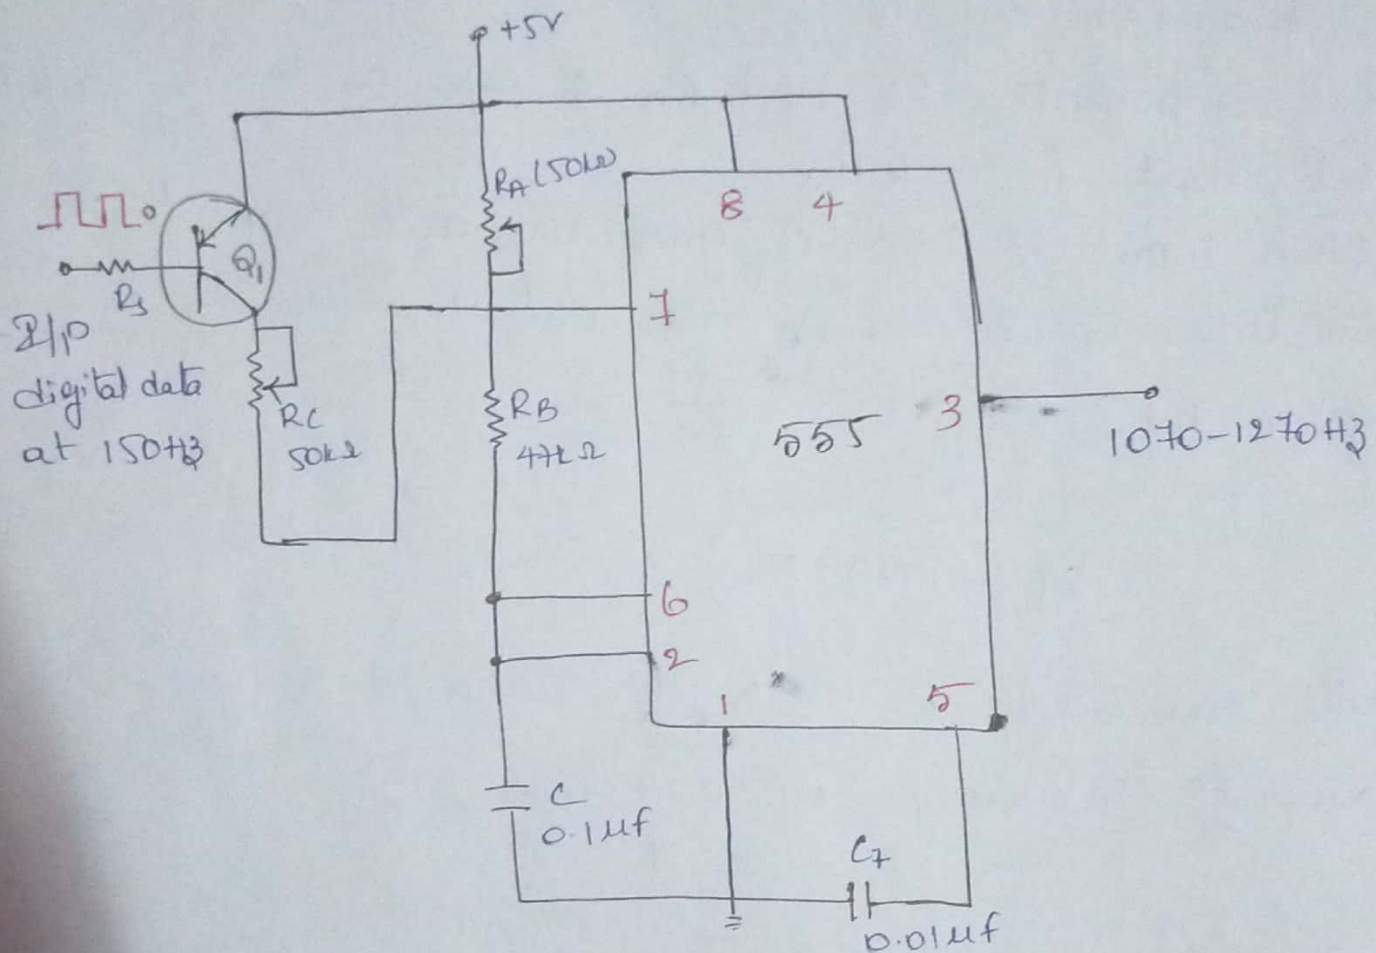 +5V
RA (50kΩ)
8 4
Q1
Rs
7
I/P
digital data
at 150Hz
RC
50kΩ
RB
47kΩ
555
3
1070-1270Hz
6
2
1
5
C
0.1μf
C7
0.01μf